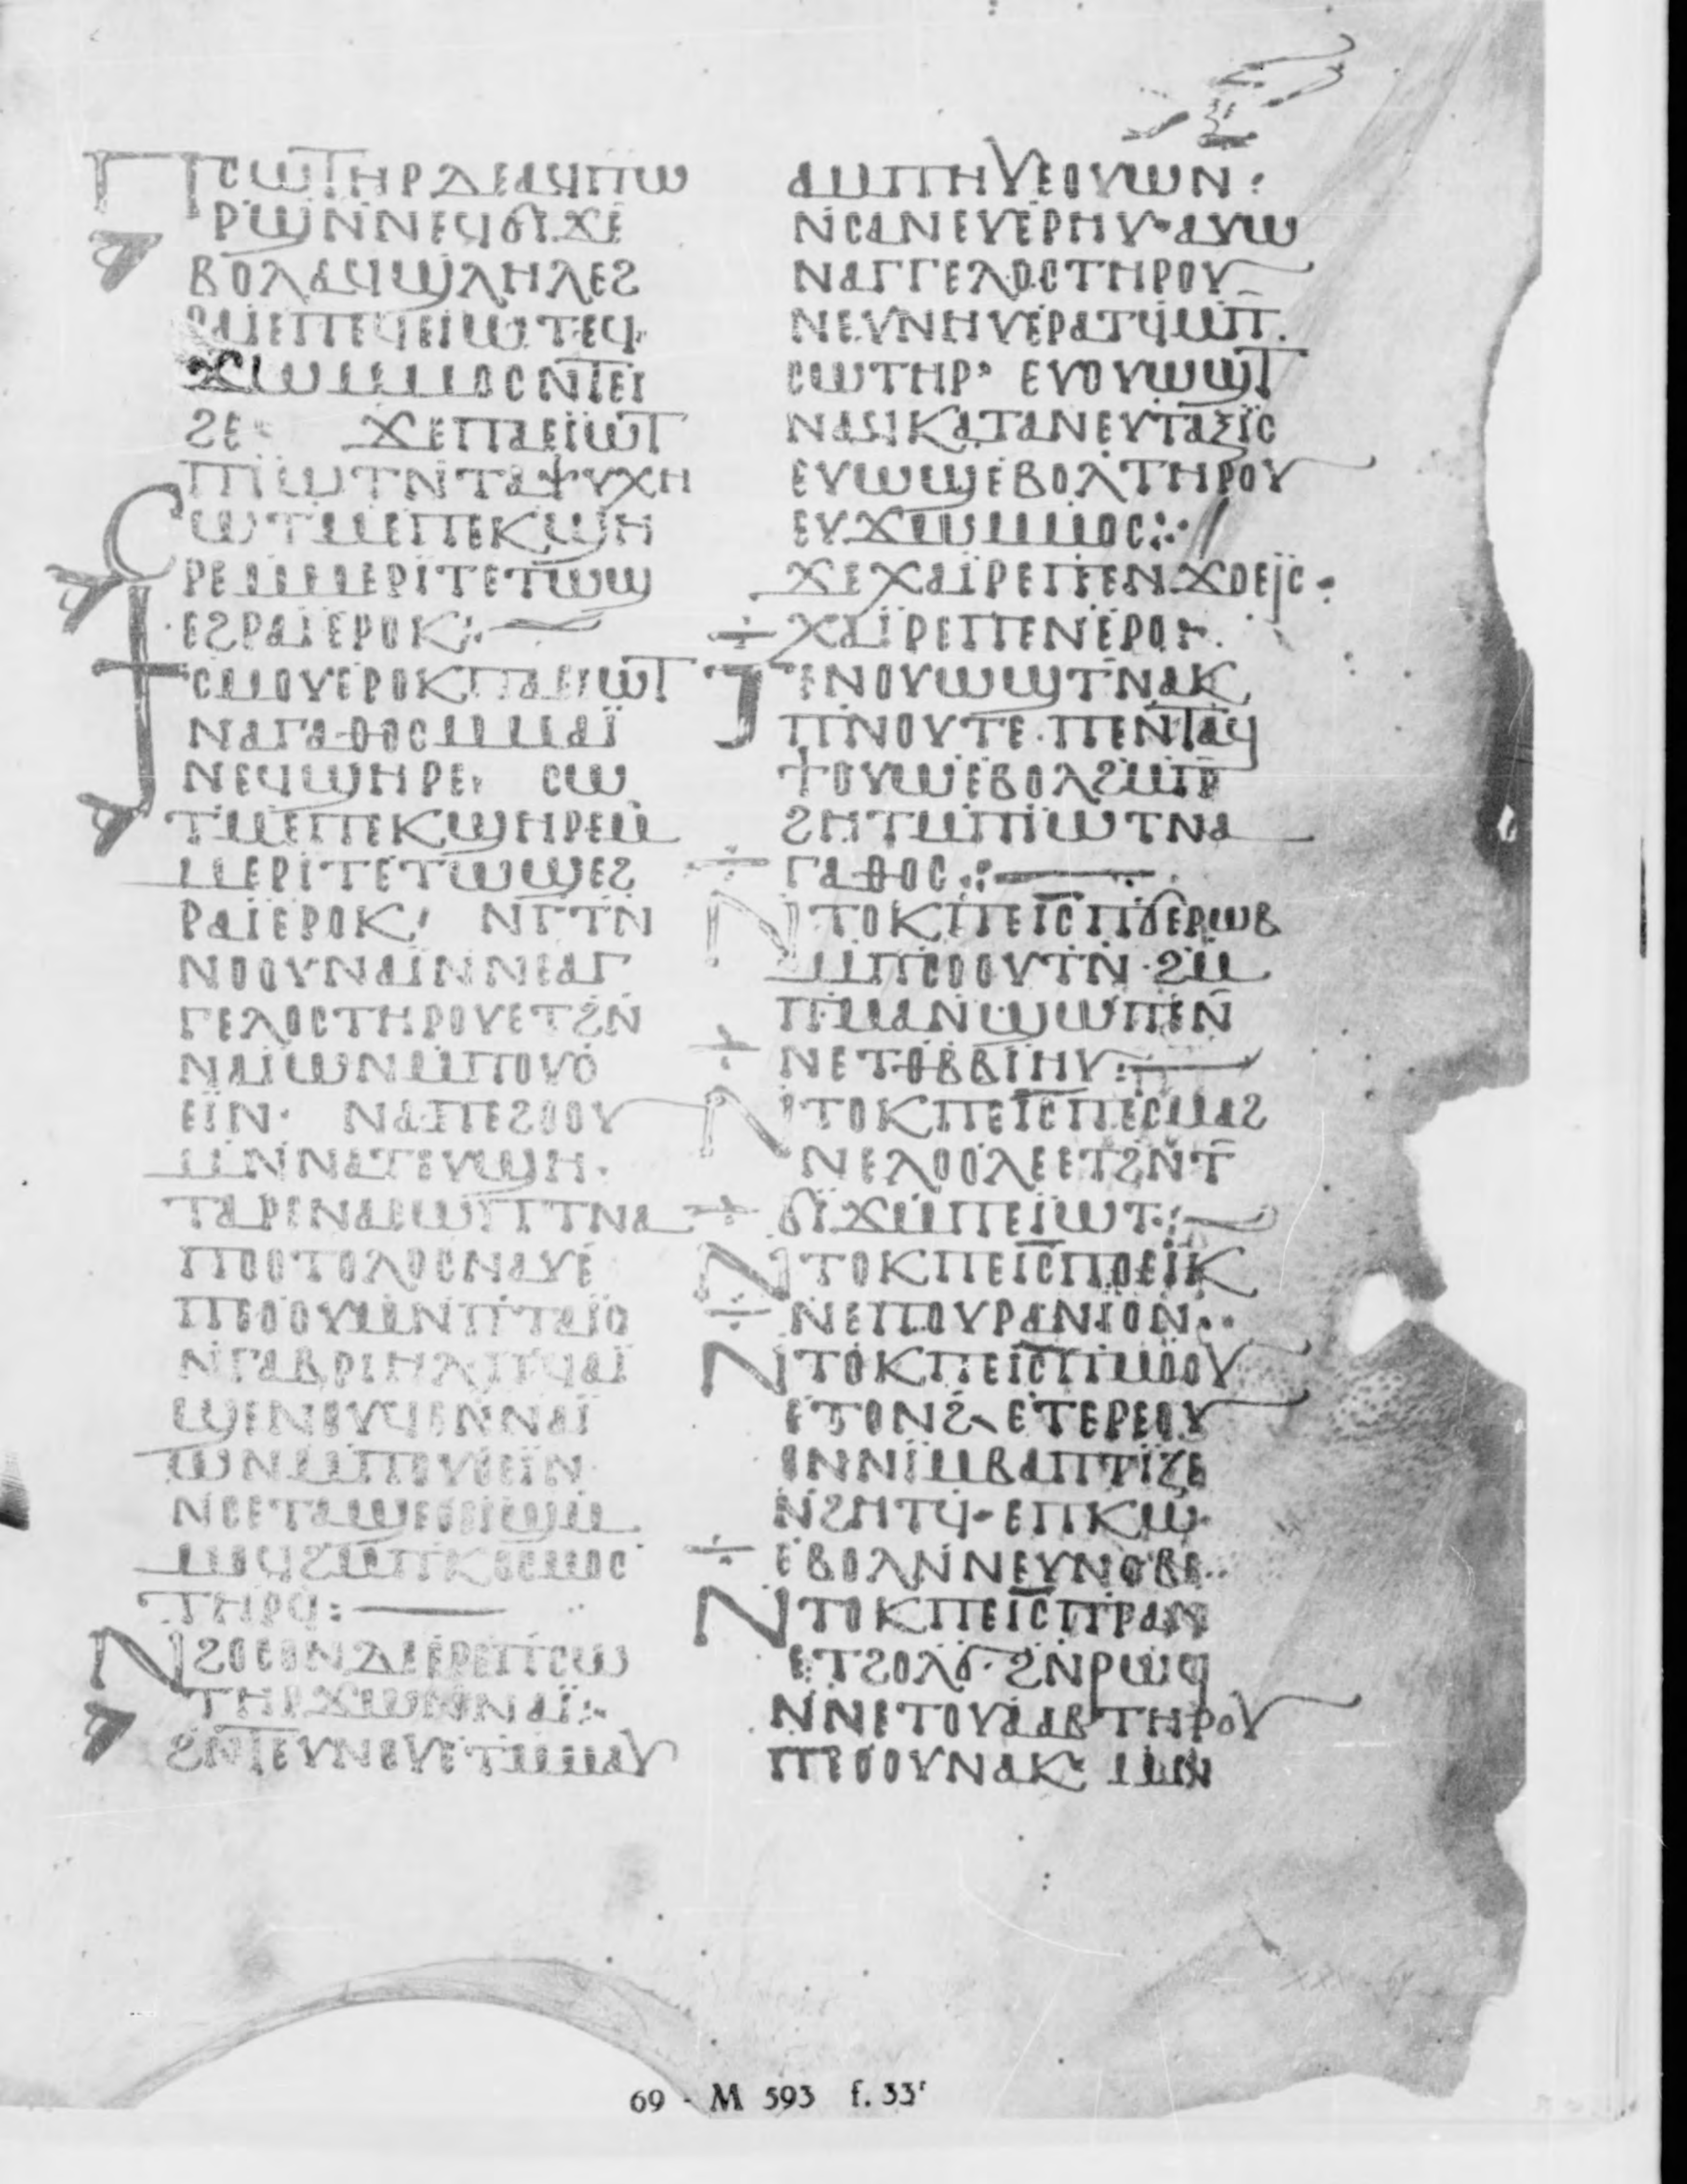 ⲠⲤⲰⲦⲎⲢⲆⲈⲀϤⲠⲰ
ⲢϢⲚⲚⲈϤϬⲒϪⲈ
ⲂⲞⲖⲀϤϢⲖⲎⲖⲈϨ
ⲢⲀⲒⲈⲠⲈϤⲈⲒⲰⲦ·ⲈϤ
ϪⲰⲘⲘⲞⲤⲚⲦⲈⲒ
ϨⲈ· ϪⲈⲠⲀⲈⲒⲰⲦ
ⲠⲒⲰⲦⲚⲦⲀⲮⲨⲬⲎ
ⲤⲰⲦⲘⲈⲠⲈⲔϢⲎ
ⲢⲈⲘⲘⲈⲢⲒⲦⲈⲦⲰϢ
ⲈϨⲢⲀⲒⲈⲢⲞⲔ:·
ϮⲤⲘⲞⲨⲈⲢⲞⲔⲠⲀⲈⲒⲰⲦ
ⲚⲀⲄⲀⲐⲞⲤⲘⲘⲀⲒ
ⲚⲈϤϢⲎⲢⲈ· ⲤⲰ
ⲦⲘⲈⲠⲈⲔϢⲎⲢⲈⲘ
ⲘⲈⲢⲒⲦⲈⲦⲰϢⲈϨ
ⲢⲀⲒⲈⲢⲞⲔ· ⲚⲄⲦⲚ
ⲚⲞⲞⲨⲚⲀⲒⲚⲚⲈⲀⲄ
ⲄⲈⲖⲞⲤⲦⲎⲢⲞⲨⲈⲦϨⲚ
ⲚⲀⲒⲰⲚⲘⲠⲞⲨⲞ
ⲈⲒⲚ· ⲚⲀⲠⲈϨⲞⲞⲨ
ⲘⲚⲚⲀⲦⲈⲨϢⲎ·
ⲦⲀⲢⲈⲚⲀⲈⲰⲠⲦⲚⲀ
ⲠⲞⲤⲦⲟⲗⲟⲥⲚⲀⲨⲈ
ⲠⲈⲞⲞⲨⲘⲚⲠⲦⲀⲒⲞ
ⲚⲄⲀⲂⲢⲒⲎⲖⲠϤⲀⲒ
ϢⲈⲚⲞⲨϤⲈⲚⲚⲀⲒ
ⲰⲚⲘⲠⲞⲨⲞⲈⲒⲚ
ⲚⲤⲈⲦⲀϢⲈⲞⲈⲒϢⲘ
ⲘⲞϤϨⲘⲠⲔⲞⲤⲘⲞⲤ
ⲦⲎⲢϤ:
ⲚϨⲞⲤⲞⲚⲆⲈⲈⲢⲈⲠⲤⲰ
ⲦⲎⲢϪⲰⲚⲚⲀⲒ:·
ϨⲚⲦⲈⲨⲚⲞⲨⲈⲦⲘⲘⲀⲨ
ⲀⲘⲠⲎⲨⲈⲞⲨⲰⲚ:
ⲚⲤⲀⲚⲈⲨⲈⲢⲎⲨ·ⲀⲨⲰ
ⲚⲀⲄⲄⲈⲖⲞⲤⲦⲎⲢⲞⲨ
ⲚⲈⲨⲚⲎⲨⲈⲢⲀⲦϤⲘⲠ
ⲤⲰⲦⲎⲢ· ⲈⲨⲞⲨⲰϢⲦ
ⲚⲀϤⲔⲀⲦⲀⲚⲈⲨⲦⲀⲜⲒⲤ
ⲈⲨⲰϢⲈⲂⲞⲖⲦⲎⲢⲞⲨ
ⲈⲨϪⲰⲘⲘⲞⲤ:·
ϪⲈⲬⲀⲒⲢⲈⲠⲈⲚϪⲞⲈⲒⲤ·
ⲬⲀⲒⲢⲈⲠⲈⲚⲈⲢⲞ:·
ⲦⲈⲚⲞⲨⲰϢⲦⲚⲀⲔ
ⲠⲚⲞⲨⲦⲈ·ⲠⲈⲚⲦⲀϤ
ϮⲞⲨⲰⲈⲂⲞⲖϨⲘⲠ
ϨⲎⲦⲘⲠⲒⲰⲦⲚⲀ
ⲄⲀⲐⲞⲤ:·
ⲚⲦⲞⲔⲠⲈⲒⲤⲠϬⲈⲢⲰⲂ
ⲘⲠⲤⲞⲞⲨⲦⲚ·ϨⲘ
ⲠⲘⲀⲚϢⲰⲠⲈⲚ
ⲚⲈⲦⲐⲂⲂⲒⲎⲨ:
ⲚⲦⲞⲔⲠⲈⲒⲤⲠⲈⲤⲘⲀϨ
ⲚⲈⲖⲞⲞⲖⲈⲈⲦϨⲚⲦ
ϬⲒϪⲘⲠⲈⲒⲰⲦ:
ⲚⲦⲞⲔⲠⲈⲒⲤⲠⲞⲈⲒⲔ
ⲚⲈⲠⲞⲨⲢⲀⲚⲒⲞⲚ··
ⲚⲦⲞⲔⲠⲈⲒⲤⲠⲘⲞⲞⲨ
ⲈⲦⲞⲚϨ· ⲈⲦⲈⲢⲈⲞⲨ
ⲞⲚⲚⲒⲘⲂⲀⲠⲦⲒⲌⲈ
ⲚϨⲎⲦϤ·ⲈⲠⲔⲰ
ⲈⲂⲞⲖⲚⲚⲈⲨⲚⲞⲂⲈ··
ⲚⲦⲞⲔⲠⲈⲒⲤⲠⲢⲀⲚ
ⲈⲦϨⲞⲖϬ·ϨⲚⲢⲰϤ
ⲚⲚⲈⲦⲞⲨⲀⲀⲂⲦⲎⲢⲞⲨ
ⲠⲈⲞⲞⲨⲚⲀⲔ· ⲘⲚ
69 - M 593 f. 33r